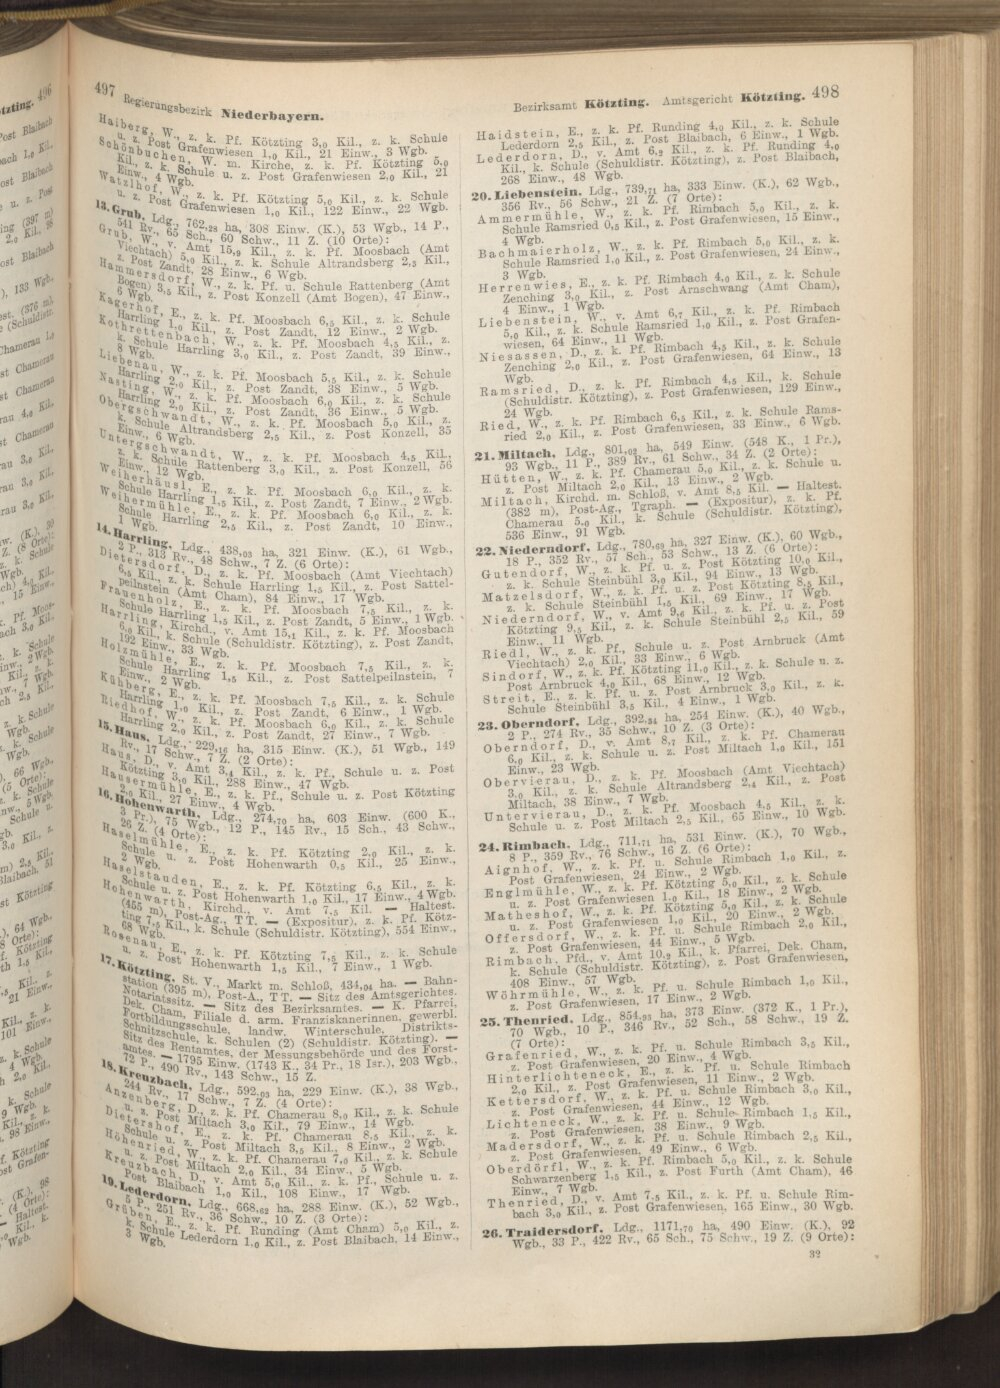 497 Regierungsbezirk Niederbayern.
Haiberg, W., z. k. Pf. Kötzting 3,0 Kil., z. k. Schule
u. z. Post Grafenwiesen 1,0 Kil., 21 Einw., 3 Wgb.
Schönbuchen, W. m. Kirche, z. k. Pf. Kötzting 5,0
Kil., z. k. Schule u. z. Post Grafenwiesen 2,0 Kil., 21
Einw., 4 Wgb.
Watzlhof, W., z. k. Pf. Kötzting 5,0 Kil., z. k. Schule
u. z. Post Grafenwiesen 1,0 Kil., 122 Einw., 22 Wgb.
13. Grub, Ldg., 762,28 ha, 308 Einw. (K.), 53 Wgb., 14 P.,
541 Rv., 65 Sch., 60 Schw., 11 Z. (10 Orte):
Grub, W., v. Amt 15,9 Kil., z. k. Pf. Moosbach (Amt
Viechtach) 5,0 Kil., z. k. Schule Altrandsberg 2,5 Kil.,
z. Post Zandt, 28 Einw., 6 Wgb.
Hammersdorf, W., z. k. Pf. u. Schule Rattenberg (Amt
Bogen) 3,5 Kil., z. Post Konzell (Amt Bogen), 47 Einw.,
6 Wgb.
Kagerhof, E., z. k. Pf. Moosbach 6,5 Kil., z. k. Schule
Harrling 1,0 Kil., z. Post Zandt, 12 Einw., 2 Wgb.
Kothrettenbach, W., z. k. Pf. Moosbach 4,5 Kil., z.
k. Schule Harrling 3,0 Kil., z. Post Zandt, 39 Einw.,
8 Wgb.
Liebenau, W., z. k. Pf. Moosbach 5,5 Kil., z. k. Schule
Harrling 2,0 Kil., z. Post Zandt, 38 Einw., 5 Wgb.
Nasting, W., z. k. Pf. Moosbach 6,0 Kil., z. k. Schule
Harrling 2,0 Kil., z. Post Zandt, 36 Einw., 5 Wgb.
Obergschwandt, W., z. k. Pf. Moosbach 5,0 Kil., z.
k. Schule Altrandsberg 2,5 Kil., z. Post Konzell, 35
Einw., 6 Wgb.
Untergschwandt, W., z. k. Pf. Moosbach 4,5 Kil.,
z. k. Schule Rattenberg 3,0 Kil., z. Post Konzell, 56
Einw., 12 Wgb.
Weiherhäusl, E., z. k. Pf. Moosbach 6,0 Kil., z. k.
Schule Harrling 1,5 Kil., z. Post Zandt, 7 Einw., 2 Wgb.
Weihermühle, E., z. k. Pf. Moosbach 6,0 Kil., z. k.
Schule Harrling 2,5 Kil., z. Post Zandt, 10 Einw.,
1 Wgb.
14. Harrling, Ldg., 438,03 ha, 321 Einw. (K.), 61 Wgb.,
2 P., 313 Rv., 48 Schw., 7 Z. (6 Orte):
Dietersdorf, D., z. k. Pf. Moosbach (Amt Viechtach)
6,5 Kil., z. k. Schule Harrling 1,5 Kil., z. Post Sattel-
peilnstein (Amt Cham), 84 Einw., 17 Wgb.
Frauenholz, E., z. k. Pf. Moosbach 7,5 Kil., z. k.
Schule Harrling 1,5 Kil., z. Post Zandt, 5 Einw., 1 Wgb.
Harrling, Kirchd., v. Amt 15,1 Kil., z. k. Pf. Moosbach
6,0 Kil., k. Schule (Schuldistr. Kötzting), z. Post Zandt,
192 Einw., 33 Wgb.
Holzmühle, E., z. k. Pf. Moosbach 7,5 Kil., z. k.
Schule Harrling 1,5 Kil., z. Post Sattelpeilnstein, 7
Einw., 2 Wgb.
Kühberg, E., z. k. Pf. Moosbach 7,5 Kil., z. k. Schule
Harrling 1,0 Kil., z. Post Zandt, 6 Einw., 1 Wgb.
Riedhof, W., z. k. Pf. Moosbach 6,0 Kil., z. k. Schule
Harrling 2,0 Kil., z. Post Zandt, 27 Einw., 7 Wgb.
15. Haus, Ldg., 229,16 ha, 315 Einw. (K.), 51 Wgb., 149
Rv., 17 Schw., 7 Z. (2 Orte):
Haus, D., v. Amt 3,4 Kil., z. k. Pf., Schule u. z. Post
Kötzting 3,0 Kil., 288 Einw., 47 Wgb.
Hausermühle, E., z. k. Pf., Schule u. z. Post Kötzting
2,0 Kil., 27 Einw., 4 Wgb.
16. Hohenwarth, Ldg., 274,70 ha, 603 Einw. (600 K.,
3 Pr.), 75 Wgb., 12 P., 145 Rv., 15 Sch., 43 Schw.,
26 Z. (4 Orte):
Haselmühle, E., z. k. Pf. Kötzting 2,0 Kil., z. k.
Schule u. z. Post Hohenwarth 0,5 Kil., 25 Einw.,
2 Wgb.
Haselstauden, E., z. k. Pf. Kötzting 6,5 Kil., z. k.
Schule u. z. Post Hohenwarth 1,0 Kil., 17 Einw., 4 Wgb.
Hohenwarth, Kirchd., v. Amt 7,5 Kil. — Haltest.
(455 m), Post-Ag., TT. — (Expositur), z. k. Pf. Kötz-
ting 7,5 Kil., k. Schule (Schuldistr. Kötzting), 554 Einw.,
68 Wgb.
Rosenau, E., z. k. Pf. Kötzting 7,5 Kil., z. k. Schule
u. z. Post Hohenwarth 1,5 Kil., 7 Einw., 1 Wgb.
17. Kötzting, St. V., Markt m. Schloß, 434,04 ha. — Bahn-
station (395 m), Post-A., TT. — Sitz des Amtsgerichtes.
Notariatssitz. — Sitz des Bezirksamtes. — K. Pfarrei,
Dek. Cham, Filiale d. arm. Franziskanerinnen, gewerbl.
Fortbildungsschule, landw. Winterschule, Distrikts-
Schnitzschule, k. Schulen (2) (Schuldistr. Kötzting). —
Sitz des Rentamtes, der Messungsbehörde und des Forst-
amtes. — 1795 Einw. (1743 K., 34 Pr., 18 Isr.), 203 Wgb.,
72 P., 490 Rv., 143 Schw., 15 Z.
18. Kreuzbach, Ldg., 592,03 ha, 229 Einw. (K.), 38 Wgb.,
244 Rv., 17 Schw., 7 Z. (4 Orte):
Anzenberg, D., z. k. Pf. Chamerau 8,0 Kil., z. k. Schule
u. z. Post Miltach 3,0 Kil., 79 Einw., 14 Wgb.
Dietershof, E., z. k. Pf. Chamerau 8,5 Kil., z. k.
Schule u. z. Post Miltach 3,5 Kil., 8 Einw., 2 Wgb.
Höhenried, W., z. k. Pf. Chamerau 7,0 Kil., z. k. Schule
u. z. Post Miltach 2,0 Kil., 34 Einw., 5 Wgb.
Kreuzbach, D., v. Amt 5,0 Kil., z. k. Pf., Schule u. z.
Post Blaibach 1,0 Kil., 108 Einw., 17 Wgb.
19. Lederdorn, Ldg., 668,62 ha, 288 Einw. (K.), 52 Wgb.,
5 P., 251 Rv., 36 Schw., 10 Z. (3 Orte):
Grüben, E., z. k. Pf. Runding (Amt Cham) 5,0 Kil., z.
k. Schule Lederdorn 1,0 Kil., z. Post Blaibach, 14 Einw.,
3 Wgb.
Bezirksamt Kötzting. Amtsgericht Kötzting. 498
Haidstein, E., z. k. Pf. Runding 4,0 Kil., z. k. Schule
Lederdorn 2,5 Kil., z. Post Blaibach, 6 Einw., 1 Wgb.
Lederdorn, D., v. Amt 6,9 Kil., z. k. Pf. Runding 4,0
Kil., k. Schule (Schuldistr. Kötzting), z. Post Blaibach,
268 Einw., 48 Wgb.
20. Liebenstein, Ldg., 739,71 ha, 333 Einw. (K.), 62 Wgb.,
356 Rv., 56 Schw., 21 Z. (7 Orte):
Ammermühle, W., z. k. Pf. Rimbach 5,0 Kil., z. k.
Schule Ramsried 0,5 Kil., z. Post Grafenwiesen, 15 Einw.,
4 Wgb.
Bachmaierholz, W., z. k. Pf. Rimbach 5,0 Kil., z. k.
Schule Ramsried 1,0 Kil., z. Post Grafenwiesen, 24 Einw.,
3 Wgb.
Herrenwies, E., z. k. Pf. Rimbach 4,0 Kil., z. k. Schule
Zenching 3,0 Kil., z. Post Arnschwang (Amt Cham),
4 Einw., 1 Wgb.
Liebenstein, W., v. Amt 6,7 Kil., z. k. Pf. Rimbach
5,0 Kil., z. k. Schule Ramsried 1,0 Kil., z. Post Grafen-
wiesen, 64 Einw., 11 Wgb.
Niesassen, D., z. k. Pf. Rimbach 4,5 Kil., z. k. Schule
Zenching 2,0 Kil., z. Post Grafenwiesen, 64 Einw., 13
Wgb.
Ramsried, D., z. k. Pf. Rimbach 4,5 Kil., k. Schule
(Schuldistr. Kötzting), z. Post Grafenwiesen, 129 Einw.,
24 Wgb.
Ried, W., z. k. Pf. Rimbach 6,5 Kil., z. k. Schule Rams-
ried 2,0 Kil., z. Post Grafenwiesen, 33 Einw., 6 Wgb.
21. Miltach, Ldg., 801,02 ha, 549 Einw. (548 K., 1 Pr.),
93 Wgb., 11 P., 389 Rv., 61 Schw., 34 Z. (2 Orte):
Hütten, W., z. k. Pf. Chamerau 5,0 Kil., z. k. Schule u.
z. Post Miltach 2,0 Kil., 13 Einw., 2 Wgb.
Miltach, Kirchd. m. Schloß, v. Amt 8,5 Kil. — Haltest.
(382 m), Post-Ag., Tgraph. — (Expositur), z. k. Pf.
Chamerau 5,0 Kil., k. Schule (Schuldistr. Kötzting),
536 Einw., 91 Wgb.
22. Niederndorf, Ldg., 780,69 ha, 327 Einw. (K.), 60 Wgb.,
18 P., 352 Rv., 57 Sch., 53 Schw., 13 Z. (6 Orte):
Gutendorf, W., z. k. Pf. u. z. Post Kötzting 10,0 Kil.,
z. k. Schule Steinbühl 3,0 Kil., 94 Einw., 13 Wgb.
Matzelsdorf, W., z. k. Pf. u. z. Post Kötzting 8,5 Kil.,
z. k. Schule Steinbühl 1,5 Kil., 69 Einw., 17 Wgb.
Niederndorf, W., v. Amt 9,6 Kil., z. k. Pf. u. z. Post
Kötzting 9,5 Kil., z. k. Schule Steinbühl 2,5 Kil., 59
Einw., 11 Wgb.
Riedl, W., z. k. Pf., Schule u. z. Post Arnbruck (Amt
Viechtach) 2,0 Kil., 33 Einw., 6 Wgb.
Sindorf, W., z. k. Pf. Kötzting 11,0 Kil., z. k. Schule u. z.
Post Arnbruck 4,0 Kil., 68 Einw., 12 Wgb.
Streit, E., z. k. Pf. u. z. Post Arnbruck 3,0 Kil., z. k.
Schule Steinbühl 3,5 Kil., 4 Einw., 1 Wgb.
23. Oberndorf, Ldg., 392,54 ha, 254 Einw. (K.), 40 Wgb.,
2 P., 274 Rv., 35 Schw., 10 Z. (3 Orte):
Oberndorf, D., v. Amt 8,7 Kil., z. k. Pf. Chamerau
6,0 Kil., z. k. Schule u. z. Post Miltach 1,0 Kil., 151
Einw., 23 Wgb.
Obervierau, D., z. k. Pf. Moosbach (Amt Viechtach)
3,0 Kil., z. k. Schule Altrandsberg 2,4 Kil., z. Post
Miltach, 38 Einw., 7 Wgb.
Untervierau, D., z. k. Pf. Moosbach 4,5 Kil., z. k.
Schule u. z. Post Miltach 2,5 Kil., 65 Einw., 10 Wgb.
24. Rimbach, Ldg., 711,71 ha, 531 Einw. (K.), 70 Wgb.,
8 P., 359 Rv., 76 Schw., 16 Z. (6 Orte):
Aignhof, W., z. k. Pf. u. Schule Rimbach 1,0 Kil., z.
Post Grafenwiesen, 24 Einw., 2 Wgb.
Englmühle, W., z. k. Pf. Kötzting 5,0 Kil., z. k. Schule
u. z. Post Grafenwiesen 1,0 Kil., 18 Einw., 2 Wgb.
Matheshof, W., z. k. Pf. Kötzting 5,0 Kil., z. k. Schule
u. z. Post Grafenwiesen 1,0 Kil., 20 Einw., 2 Wgb.
Offersdorf, W., z. k. Pf. u. Schule Rimbach 2,0 Kil.,
z. Post Grafenwiesen, 44 Einw., 5 Wgb.
Rimbach, Pfd., v. Amt 10,2 Kil., k. Pfarrei, Dek. Cham,
k. Schule (Schuldistr. Kötzting), z. Post Grafenwiesen,
408 Einw., 57 Wgb.
Wöhrmühle, W., z. k. Pf. u. Schule Rimbach 1,0 Kil.,
z. Post Grafenwiesen, 17 Einw., 2 Wgb.
25. Thenried, Ldg., 854,95 ha, 373 Einw. (372 K., 1 Pr.),
70 Wgb., 10 P., 346 Rv., 52 Sch., 58 Schw., 19 Z.
(7 Orte):
Grafenried, W., z. k. Pf. u. Schule Rimbach 3,5 Kil.,
z. Post Grafenwiesen, 20 Einw., 4 Wgb.
Hinterlichteneck, E., z. k. Pf. u. Schule Rimbach
2,0 Kil., z. Post Grafenwiesen, 11 Einw., 2 Wgb.
Kettersdorf, W., z. k. Pf. u. Schule Rimbach 3,0 Kil.,
z. Post Grafenwiesen, 44 Einw., 12 Wgb.
Lichteneck, W., z. k. Pf. u. Schule Rimbach 1,5 Kil.,
z. Post Grafenwiesen, 38 Einw., 9 Wgb.
Madersdorf, W., z. k. Pf. u. Schule Rimbach 2,5 Kil.,
z. Post Grafenwiesen, 49 Einw., 6 Wgb.
Oberdörfl, W., z. k. Pf. Rimbach 5,0 Kil., z. k. Schule
Schwarzenberg 1,5 Kil., z. Post Furth (Amt Cham), 46
Einw., 7 Wgb.
Thenried, D., v. Amt 7,5 Kil., z. k. Pf. u. Schule Rim-
bach 3,0 Kil., z. Post Grafenwiesen, 165 Einw., 30 Wgb.
26. Traidersdorf, Ldg., 1171,70 ha, 490 Einw. (K.), 92
Wgb., 33 P., 422 Rv., 65 Sch., 75 Schw., 19 Z. (9 Orte):
32